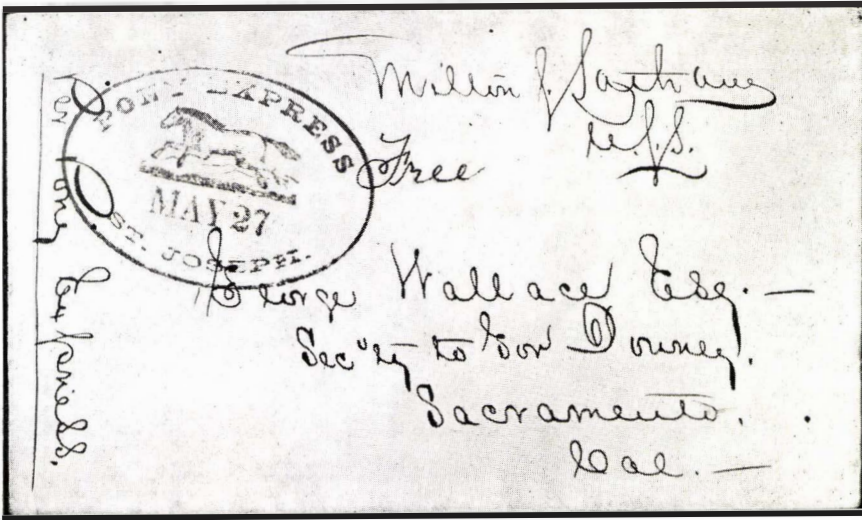 Milton S. Latham
U.S.S.
Free
PONY EXPRESS
MAY 27
ST. JOSEPH.
Per Pony Express.
George Wallace Esq. —
Sec'ry to Gov Downey.
Sacramento.
Cal. —